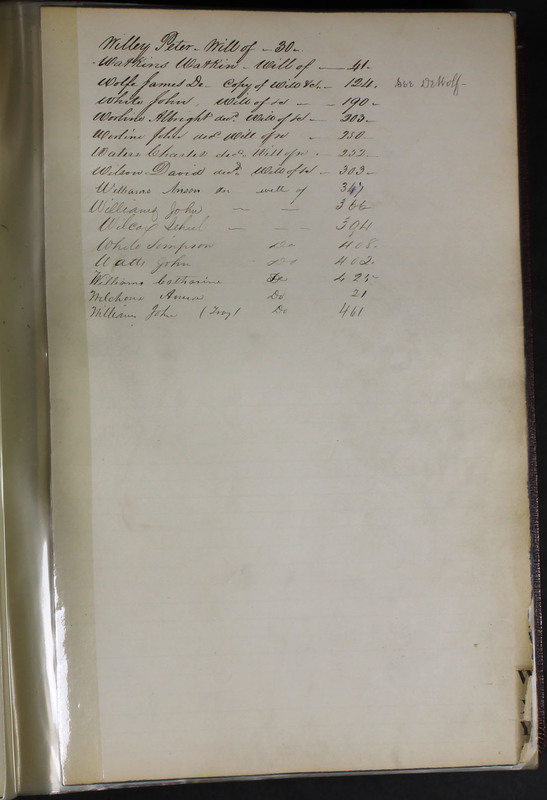 Willey Peter - Will of - 30 -
Watkins Watkin - Will of - 41 -
Wolfe James De - Copy of Will &c - 124. see DeWolf -
White John. Will of &c - - 190 -
Worline Albright decd. Will of &c - 203 -
Worline John decd Will of - 250 -
Waters Charles decd. Will of - 252 -
Wilson David decd. Will of &c - 303 -
Williams Anson dec will of 347
Williams John - - 366
Wilcox - - 394
White Simpson Do 408
Watts John Do 402
Williams Catharine Do 425
Do 21
Williams John (Troy) Do 461
W